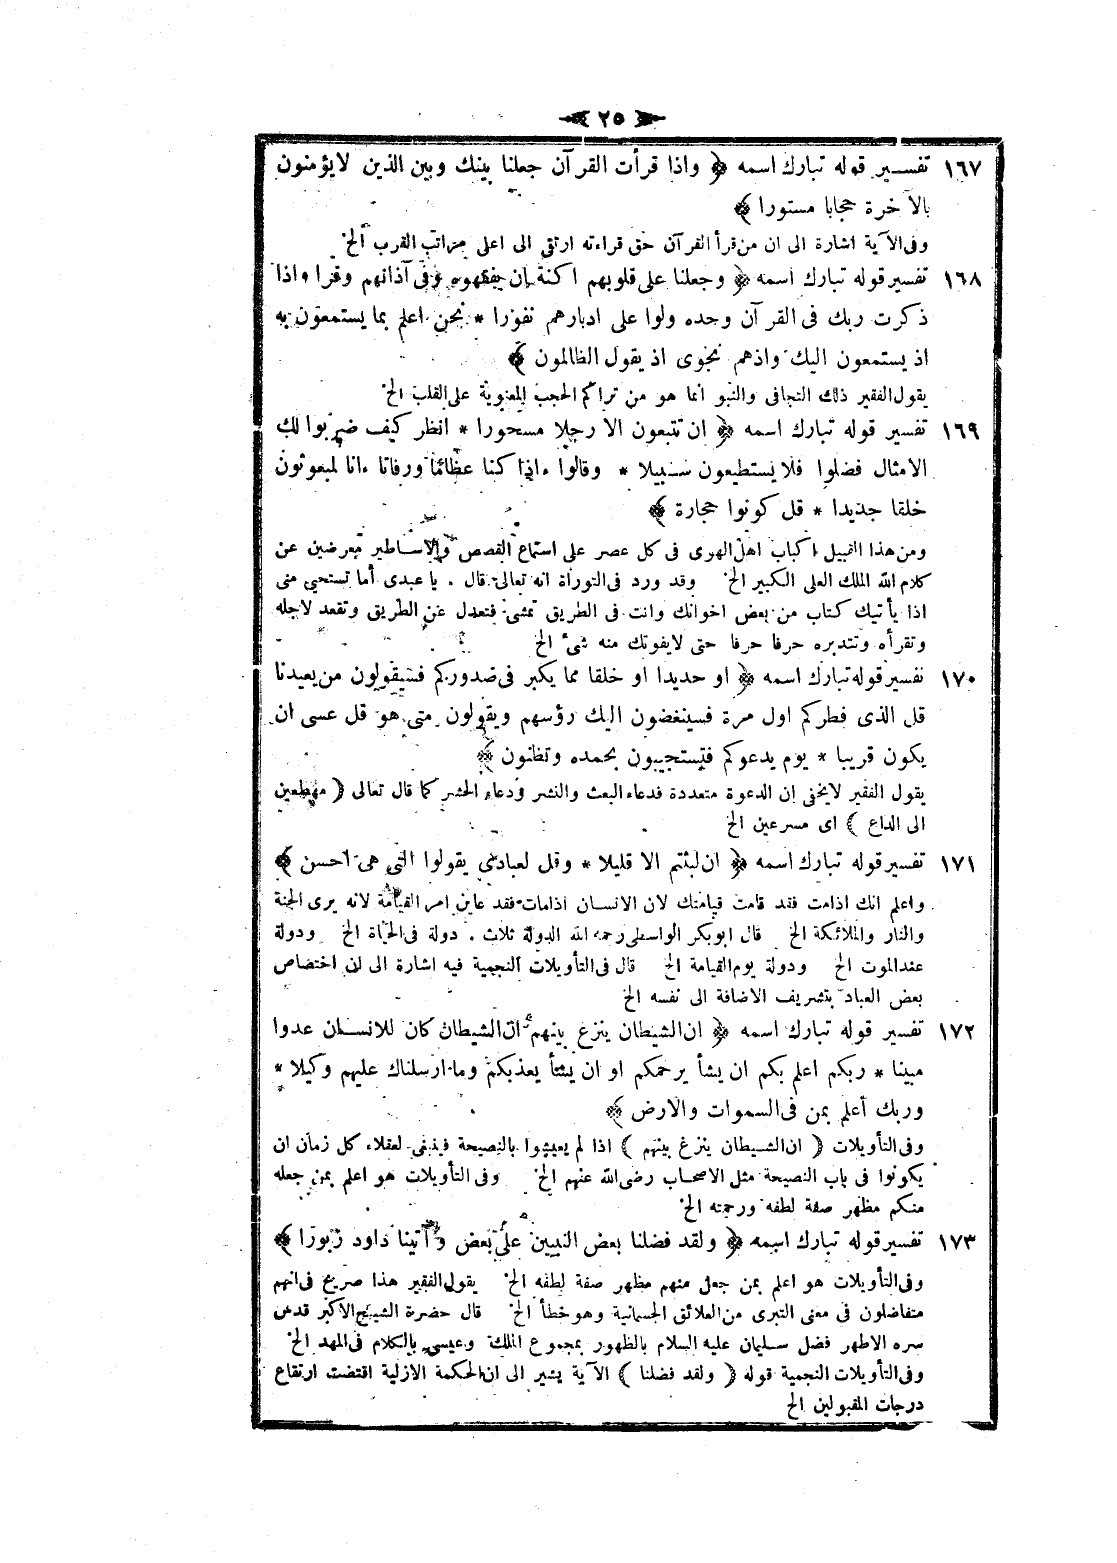 ٢٥
١٦٧ تفسير قوله تبارك اسمه ﴿ واذا قرأت القرآن جعلنا بينك وبين الذين لايؤمنون
بالآخرة حجابا مستورا ﴾
وفى الآية اشارة الى ان من قرأ القرآن حق قراءته ارتقى الى اعلى مراتب القرب الخ
١٦٨ تفسير قوله تبارك اسمه ﴿ وجعلنا على قلوبهم اكنة ان يفقهوه وفى آذانهم وقرا واذا
ذكرت ربك فى القرآن وحده ولوا على ادبارهم نفورا * نحن اعلم بما يستمعون به
اذ يستمعون اليك واذهم نجوى اذ يقول الظالمون ﴾
يقول الفقير ذلك التجافى والنبو انما هو من تراكم الحجب المعنوية على القلب الخ
١٦٩ تفسير قوله تبارك اسمه ﴿ ان تتبعون الا رجلا مسحورا * انظر كيف ضربوا لك
الامثال فضلوا فلا يستطيعون سبيلا * وقالوا ءاذا كنا عظاما ورفاتا ءانا لمبعوثون
خلقا جديدا * قل كونوا حجارة ﴾
ومن هذا القبيل اكباب اهل الهوى فى كل عصر على استماع القصص والاساطير معرضين عن
كلام الله الملك العلى الكبير الخ وقد ورد فى التوراة انه تعالى قال . يا عبدى أما تستحيى منى
اذا يأتيك كتاب من بعض اخوانك وانت فى الطريق تمشى فتعدل عن الطريق وتقعد لاجله
وتقرأه وتتدبره حرفا حرفا حتى لايفوتك منه شىء الخ
١٧٠ تفسير قوله تبارك اسمه ﴿ او حديدا او خلقا مما يكبر فى صدوركم فسيقولون من يعيدنا
قل الذى فطركم اول مرة فسينغضون اليك رؤسهم ويقولون متى هو قل عسى ان
يكون قريبا * يوم يدعوكم فتستجيبون بحمده وتظنون ﴾
يقول الفقير لايخفى ان الدعوة متعددة فدعاء البعث والنشر ودعاء الحشر كما قال تعالى ( مهطعين
الى الداع ) اى مسرعين الخ
١٧١ تفسير قوله تبارك اسمه ﴿ ان لبثتم الا قليلا * وقل لعبادى يقولوا التى هى احسن ﴾
واعلم انك اذامت فقد قامت قيامتك لان الانسان اذامات فقد عاين امر القيامة لانه يرى الجنة
والنار والملائكة الخ قال ابوبكر الواسطى رحمه الله الدولة ثلاث . دولة فى الحياة الخ ودولة
عند الموت الخ ودولة يوم القيامة الخ قال فى التأويلات النجمية فيه اشارة الى ان اختصاص
بعض العباد بتشريف الاضافة الى نفسه الخ
١٧٢ تفسير قوله تبارك اسمه ﴿ ان الشيطان ينزغ بينهم ان الشيطان كان للانسان عدوا
مبينا * ربكم اعلم بكم ان يشأ يرحمكم او ان يشأ يعذبكم وما ارسلناك عليهم وكيلا *
وربك أعلم بمن فى السموات والارض ﴾
وفى التأويلات ( ان الشيطان ينزغ بينهم ) اذا لم يعيشوا بالنصيحة فينبغى لعقلاء كل زمان ان
يكونوا فى باب النصيحة مثل الاصحاب رضى الله عنهم الخ وفى التأويلات هو اعلم بمن جعله
منكم مظهر صفة لطفه ورحمته الخ
١٧٣ تفسير قوله تبارك اسمه ﴿ ولقد فضلنا بعض النبيين على بعض وآتينا داود زبورا ﴾
وفى التأويلات هو اعلم بمن جعل منهم مظهر صفة لطفه الخ يقول الفقير هذا صريح فى انهم
متفاضلون فى معنى التبرى من العلائق الجسمانية وهو خطأ الخ قال حضرة الشيخ الاكبر قدس
سره الاطهر فضل سليمان عليه السلام بالظهور بمجموع الملك وعيسى بالكلام فى المهد الخ
وفى التأويلات النجمية قوله ( ولقد فضلنا ) الآية يشير الى ان الحكمة الازلية اقتضت ارتفاع
درجات المقبولين الخ